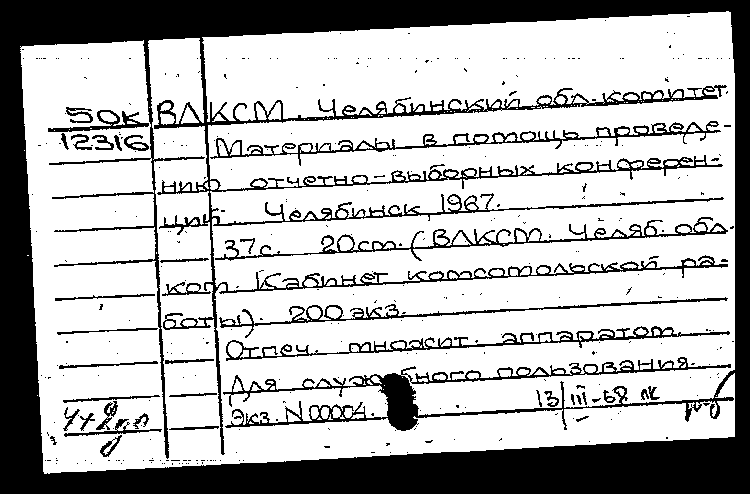 50к ВЛКСМ. Челябинский обл. комитет
12316 Материалы в помощь проведе-
нию отчетно-выборных конферен-
ций. Челябинск, 1967.
37с. 20см. (ВЛКСМ. Челяб. обл.
ком. Кабинет комсомольской ра-
боты). 200 экз.
Отпеч. множит. аппаратом.
Для служебного пользования.
Экз. N 00004. 13/III-68